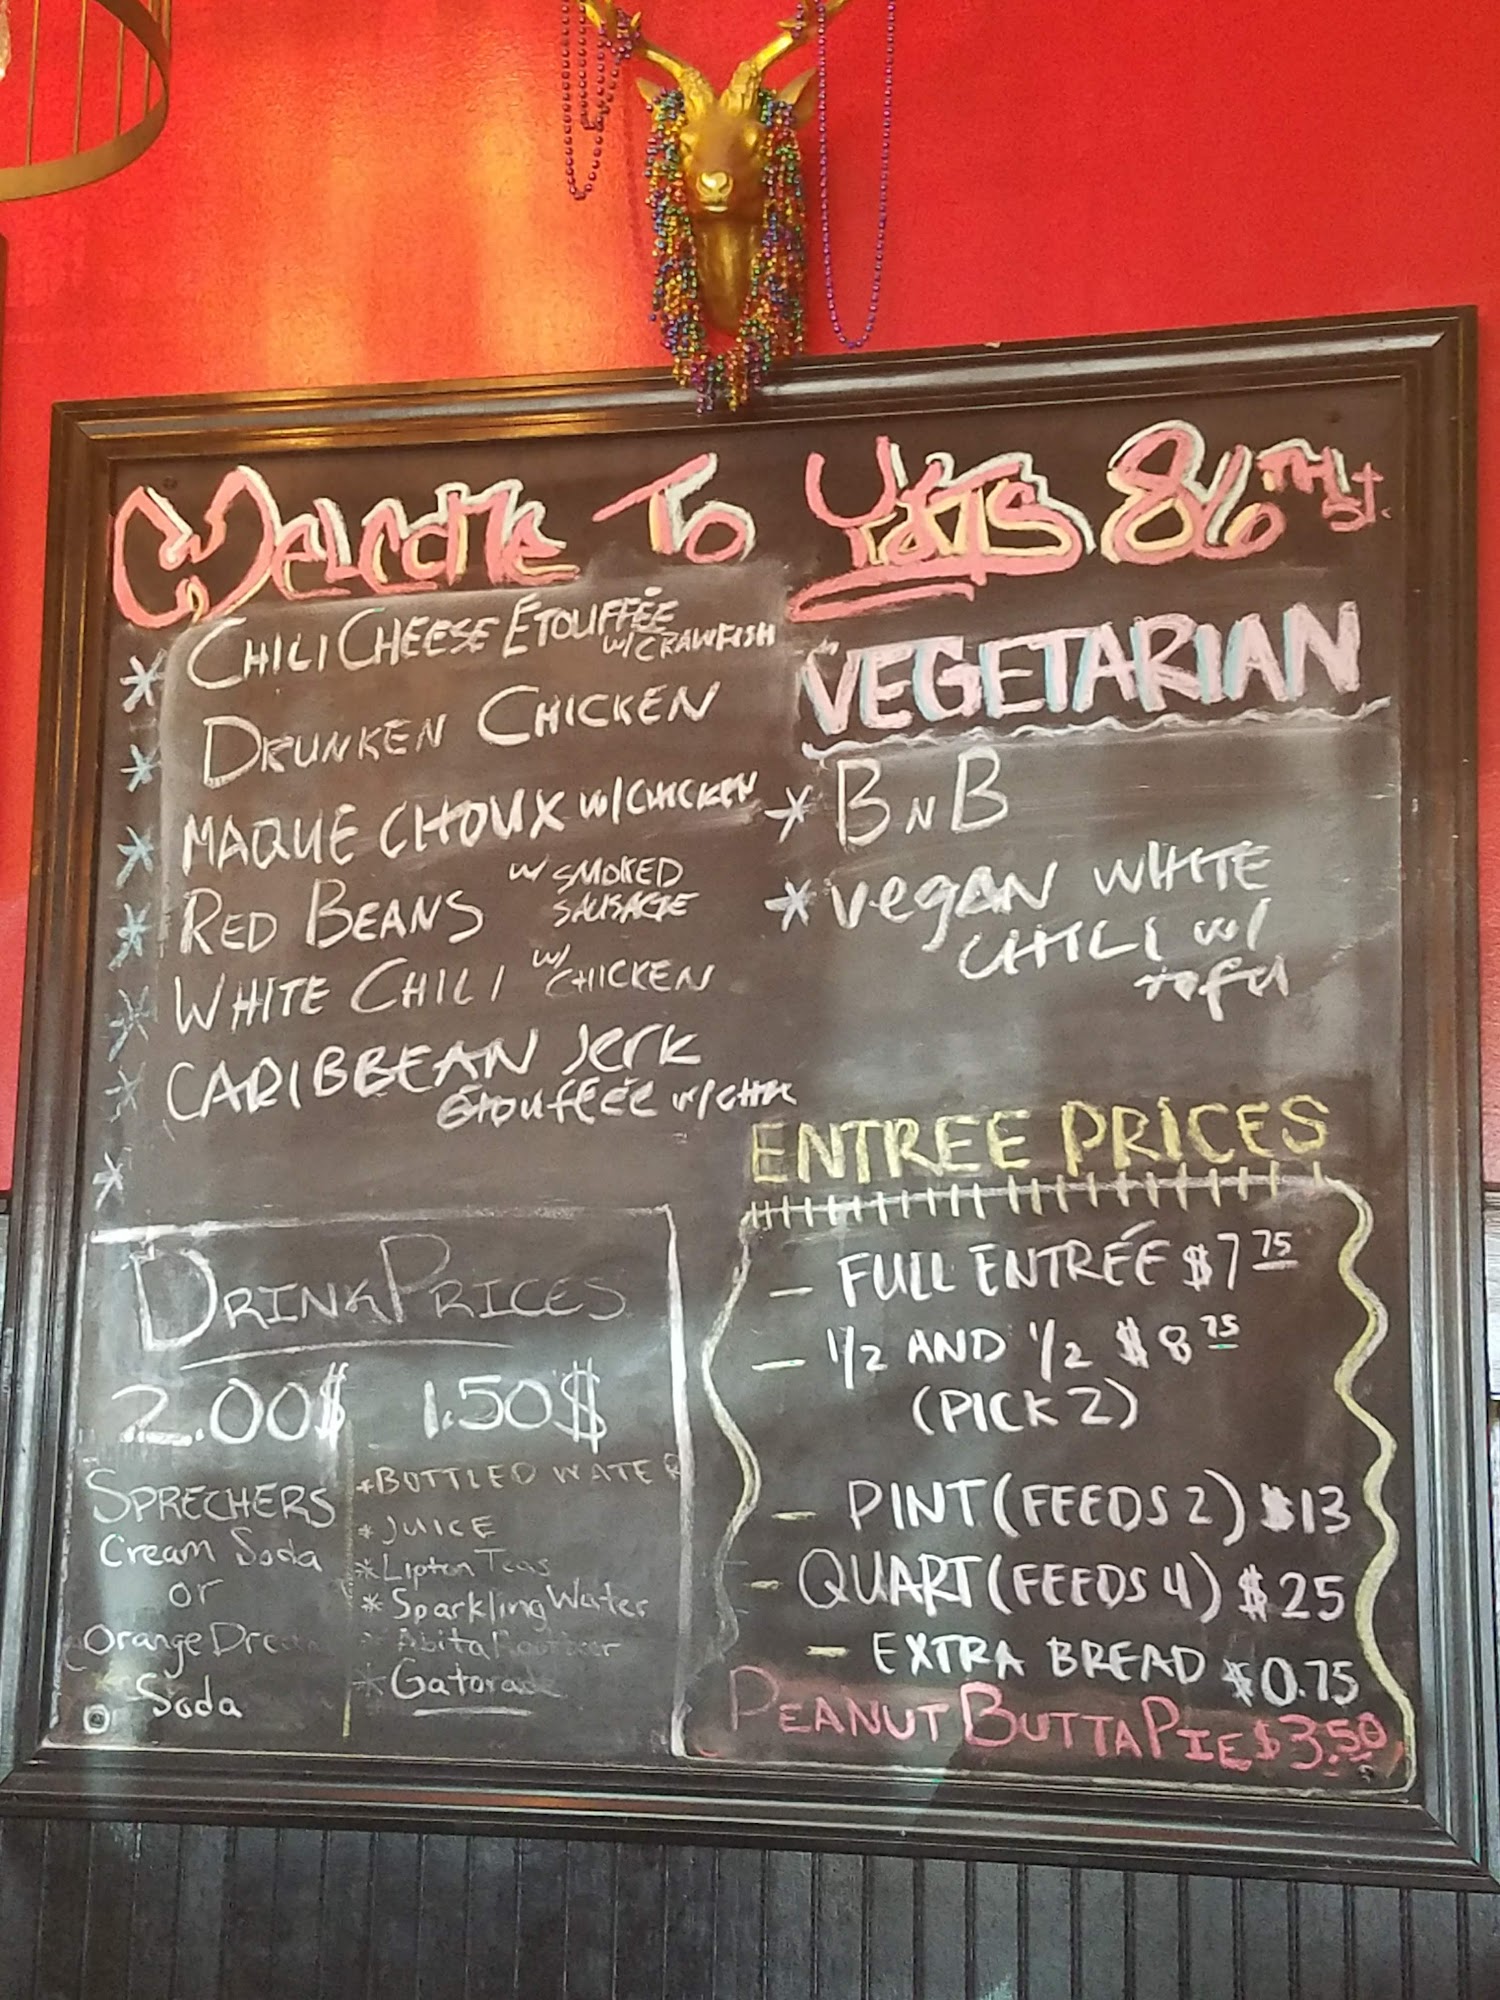 Welcome To Yats 86TH St.
* CHILI CHEESE ETOUFFÉE
w/ CRAWFISH
* DRUNKEN CHICKEN
* MAQUE CHOUX w/CHICKEN
* RED BEANS w SMOKED
SAUSAGE
* WHITE CHILI w/
CHICKEN
* CARIBBEAN Jerk
étouffée w/
*
VEGETARIAN
* B N B
* vegan WHITE
CHILI w/
tofu
DRINK PRICES
2.00$
SPRECHERS
Cream Soda
or
Orange
Soda
1.50$
* BOTTLED WATER
* JUICE
* Lipton Teas
* Sparkling Water
* Abita Rootbeer
* Gatorade
ENTREE PRICES
- FULL ENTRÉE $7 75
- 1/2 AND 1/2 $8 75
(PICK 2)
- PINT (FEEDS 2) $13
- QUART (FEEDS 4) $25
- EXTRA BREAD $0.75
PEANUT BUTTA PIE $3.50